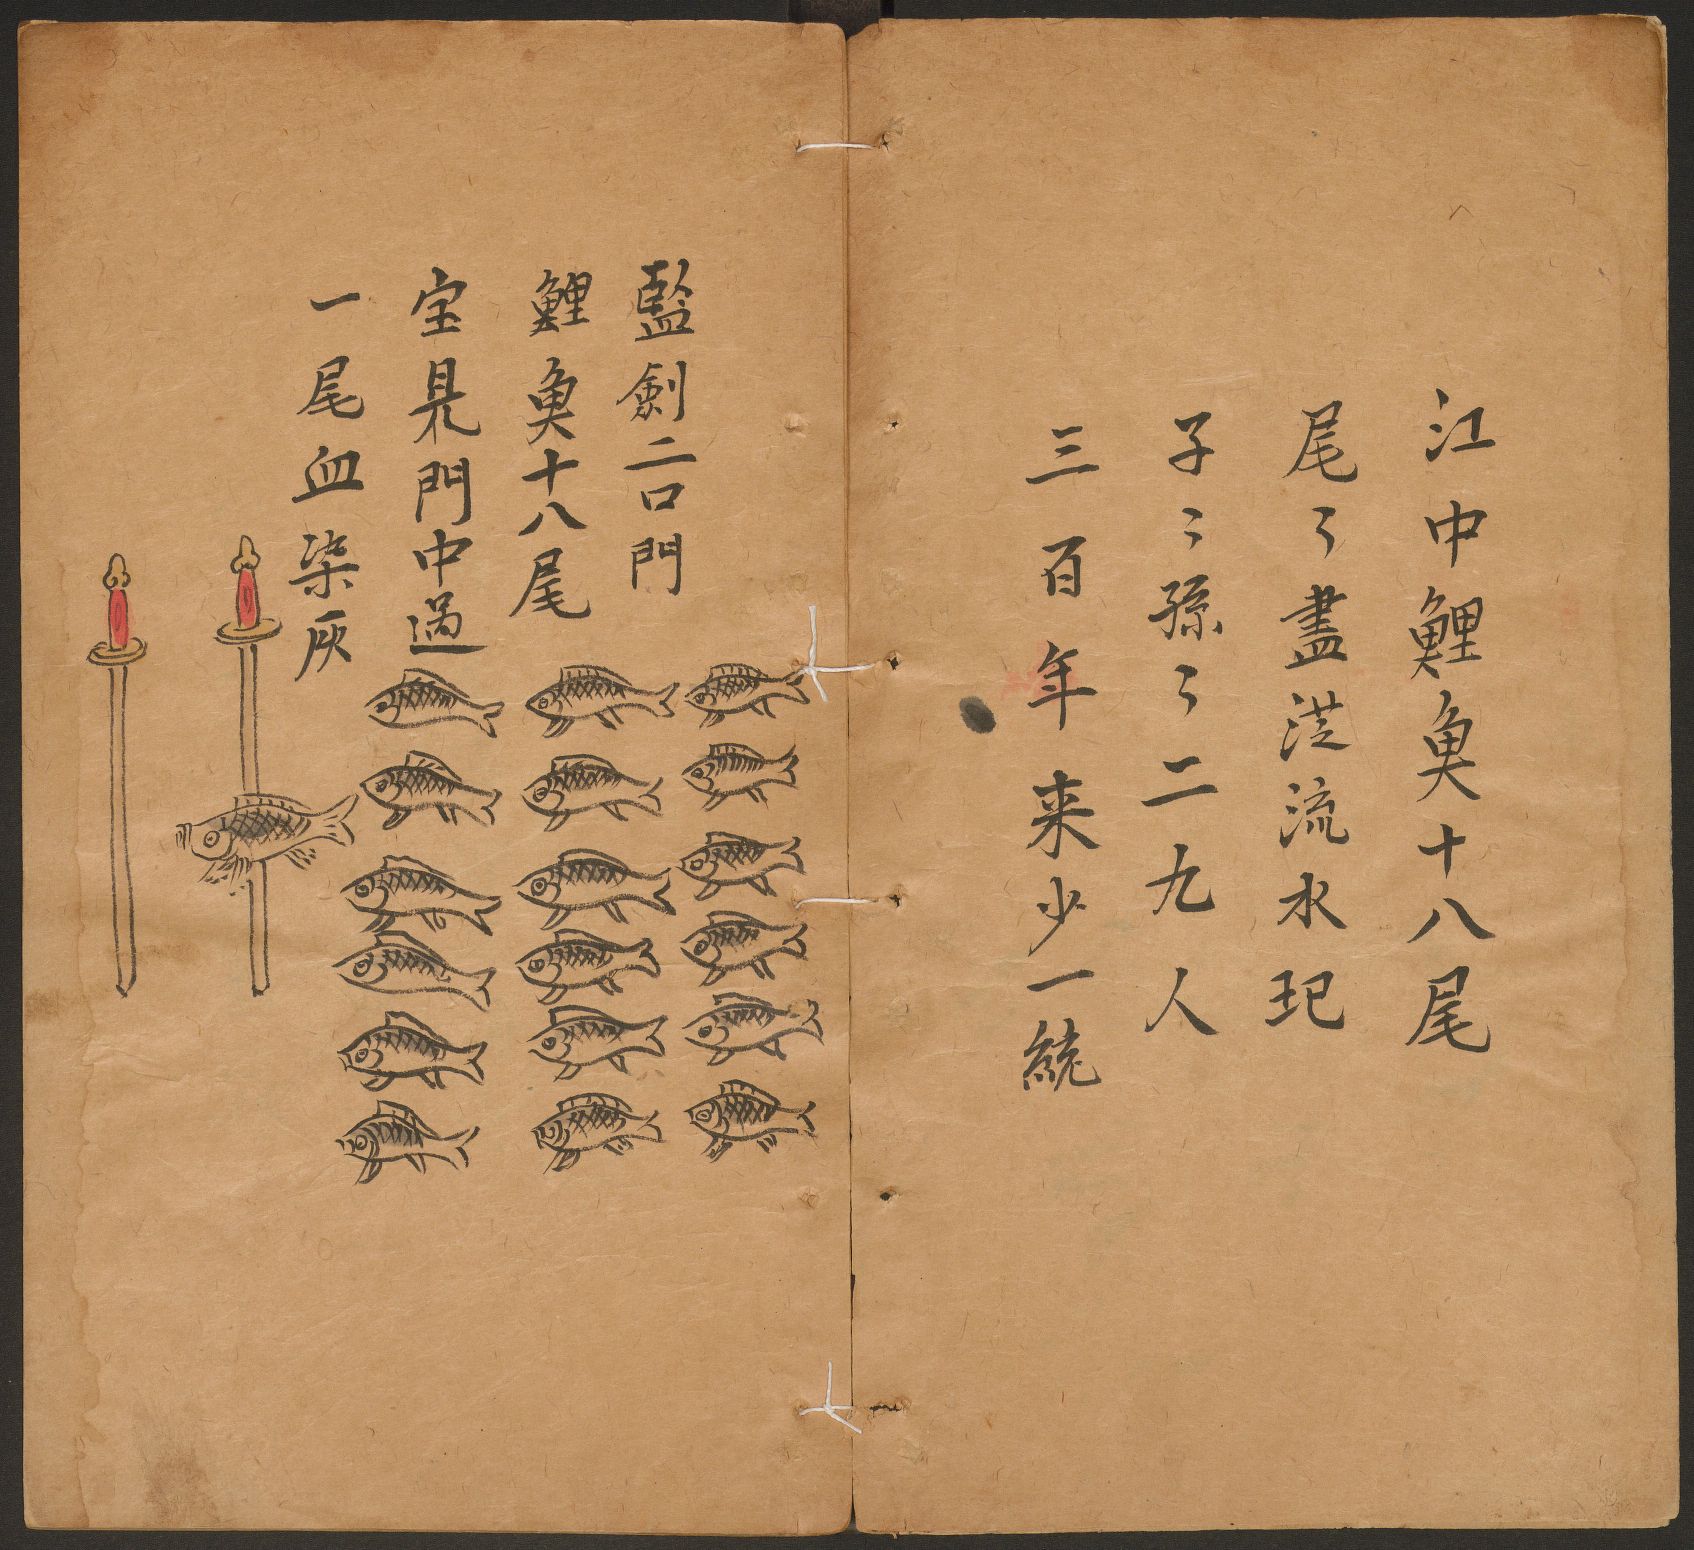 江中鯉魚十八尾
尾〻盡流水玘
子〻孫〻二九人
三百年来少一統
監劍二口門
鯉魚十八尾
宝見門中過
一尾血染灰